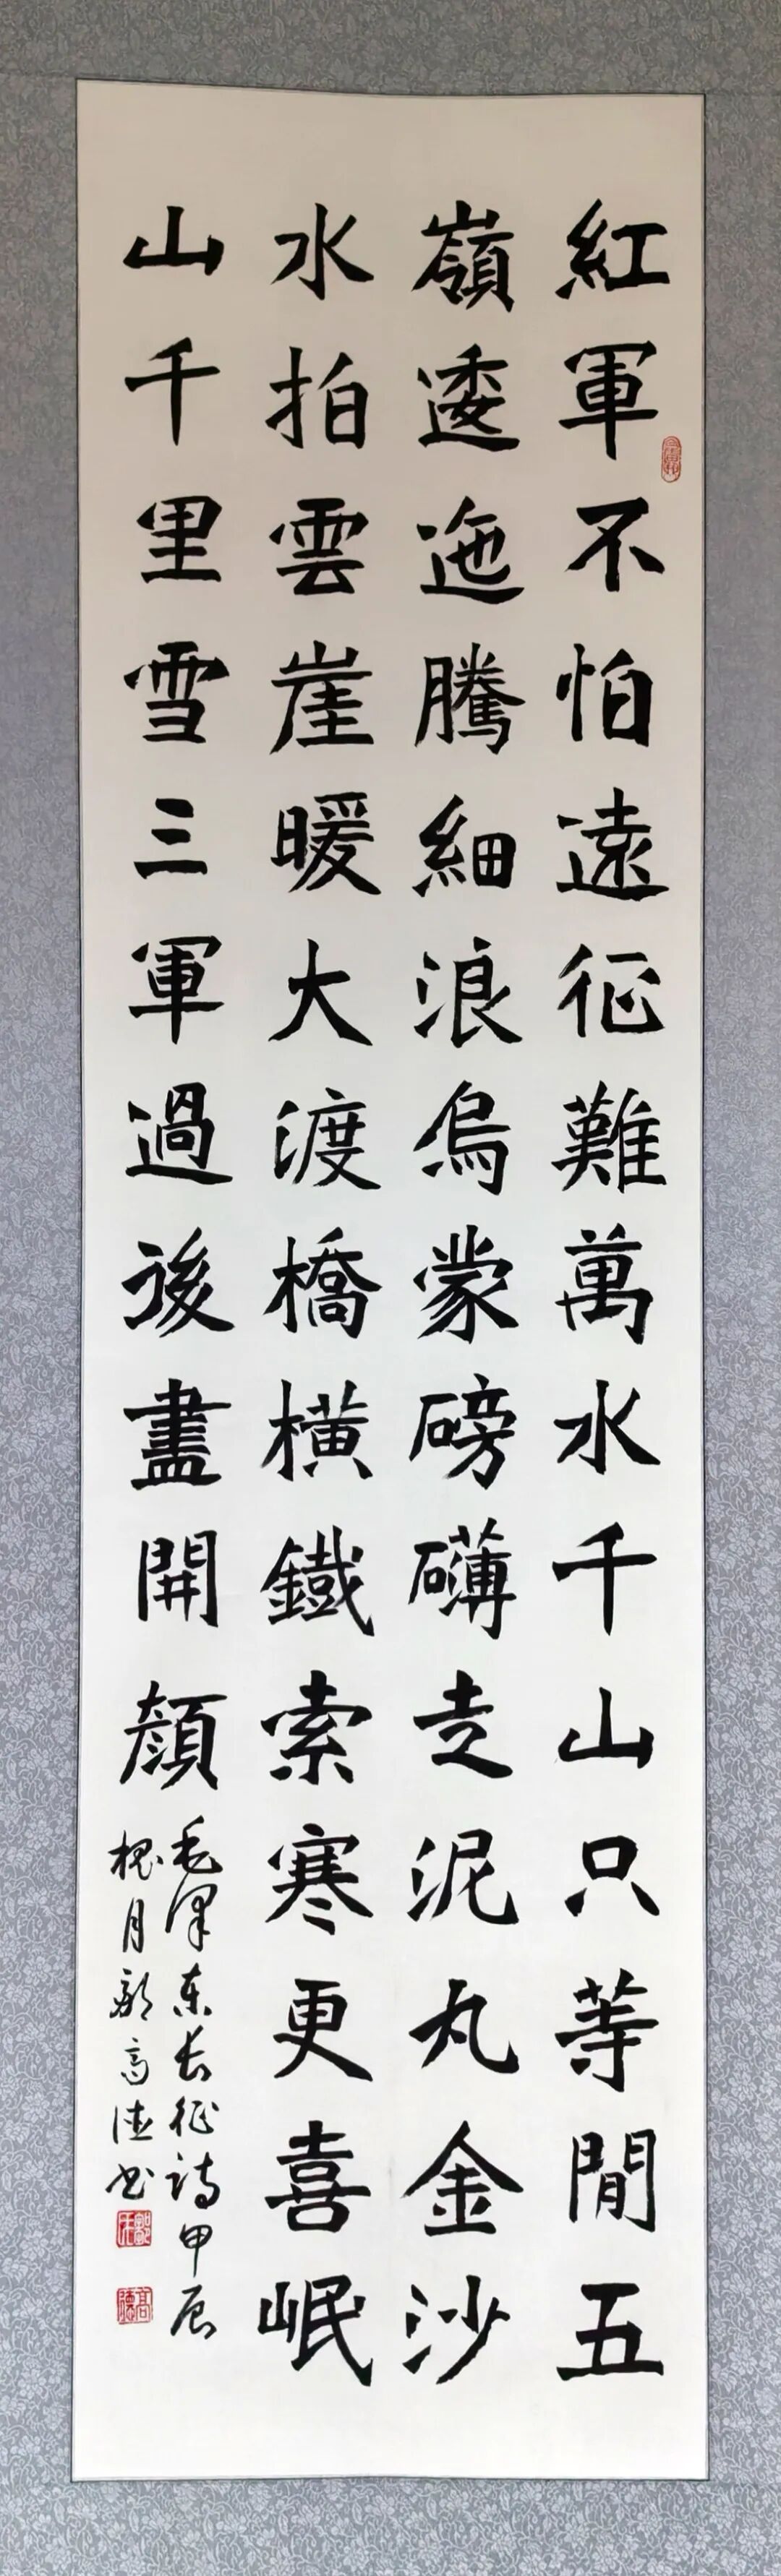 紅軍不怕遠征難萬水千山只等閒五
嶺逶迤騰細浪烏蒙磅礴走泥丸金沙
水拍雲崖暖大渡橋橫鐵索寒更喜岷
山千里雪三軍過後盡開顏
毛澤东长征诗甲辰
槐月鄒高德书